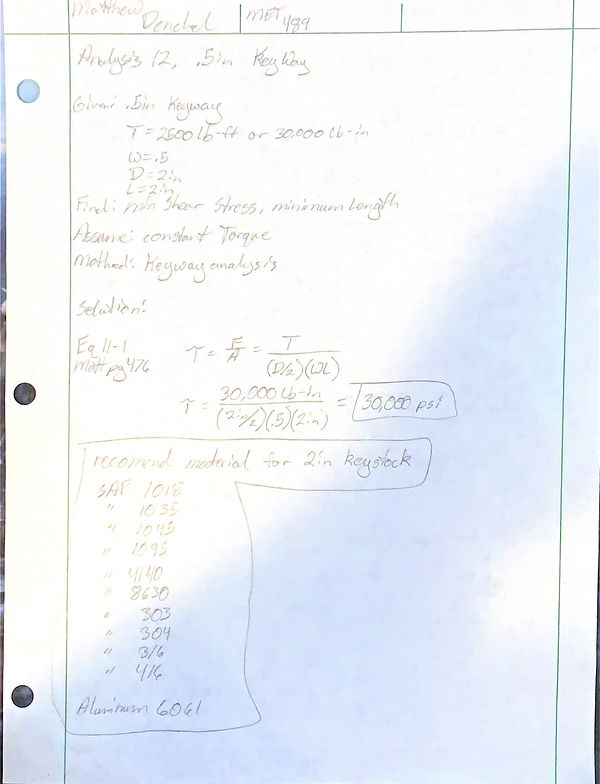 Matthew Denchel MET 489
Analysis 12, .5in KeyWay
Given: .5in Keyway
T = 2500 lb-ft or 30,000 lb-in
W = .5
D = 2in
L = 2in
Find: min Shear Stress, minimum Length
Assume: constant Torque
Method: Keyway analysis
Solution:
Eq 11-1
Mott pg 476
τ = F/A = T/((D/2)(WL))
τ = 30,000 lb-in/((2in/2)(.5)(2in)) = 30,000 psi
recomend material for 2in keystock
SAE 1018
" 1035
" 1045
" 1095
" 4140
" 8630
" 303
" 304
" 316
" 416
Aluminum 6061